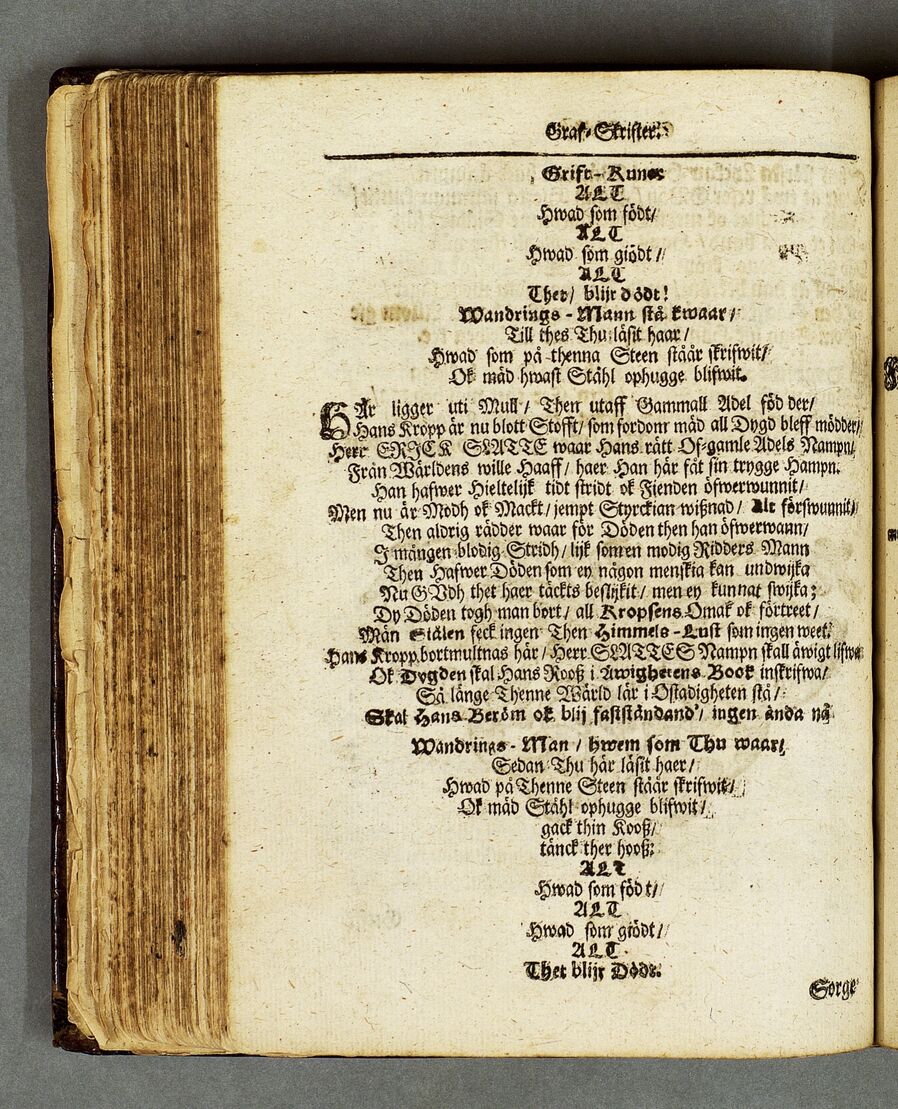 Graf-Skrifter.
Grift-Runor
ALT
Hwad som födt/
ALT
Hwad som giödt/
ALT
Thet/ blijr dödt!
Wandrings-Mann stå kwaar/
Till thes Thu läsit haar/
Hwad som på thenna Steen ståår skrifwit/
Ok mäd hwast Ståhl ophugge blifwit.
HÄr ligger uti Mull/ Then utaff Gammall Adel föd der/
Hans Kropp är nu blott Stofft/ som fordom mäd all Dygd bleff mödder/
Herr ERICK SLATTE waar Hans rätt Of-gamle Adels Nampn/
Från Wärldens wille Haaff/ haer Han här fåt sin trygge Hampn.
Han hafwer Hieltelijk tidt stridt ok Fienden öfwerwunnit/
Men nu är Modh ok Mackt/ jempt Styrckian wißnad/ Alt förswunnit/
Then aldrig rädder waar för Döden then han öfwerwann/
I mången blodig Stridh/ lijk som en modig Ridders Mann
Then Hafwer Döden som ey någon menskia kan undwijka
Nu GUdh thet haer täckts beslijkit/ men ey kunnat swijka;
Dy Döden togh man bort/ all Kropsens Omak ok förtreet/
Män Siälen feck ingen Then Himmels-Lust som ingen weet.
Hans Kropp bortmultnas här/ Herr SLATTES Nampn skall äwigt lifwa
Ok Dygden skal Hans Rooß i Äwighetens Book inskrifwa/
Så länge Thenne Wärld lär i Ostadigheten stå/
Skal Hans Beröm ok blij fastståndand'/ ingen ända nå
Wandrings-Man/ hwem som Thu waar/
Sedan Thu här läsit haer/
Hwad på Thenne Steen ståår skrifwit/
Ok mäd Ståhl ophugge blifwit/
gack thin Kooß/
tänck ther hooß:
ALT
Hwad som födt/
ALT
Hwad som giödt/
ALT
Thet blijr Dödt.
Sorge